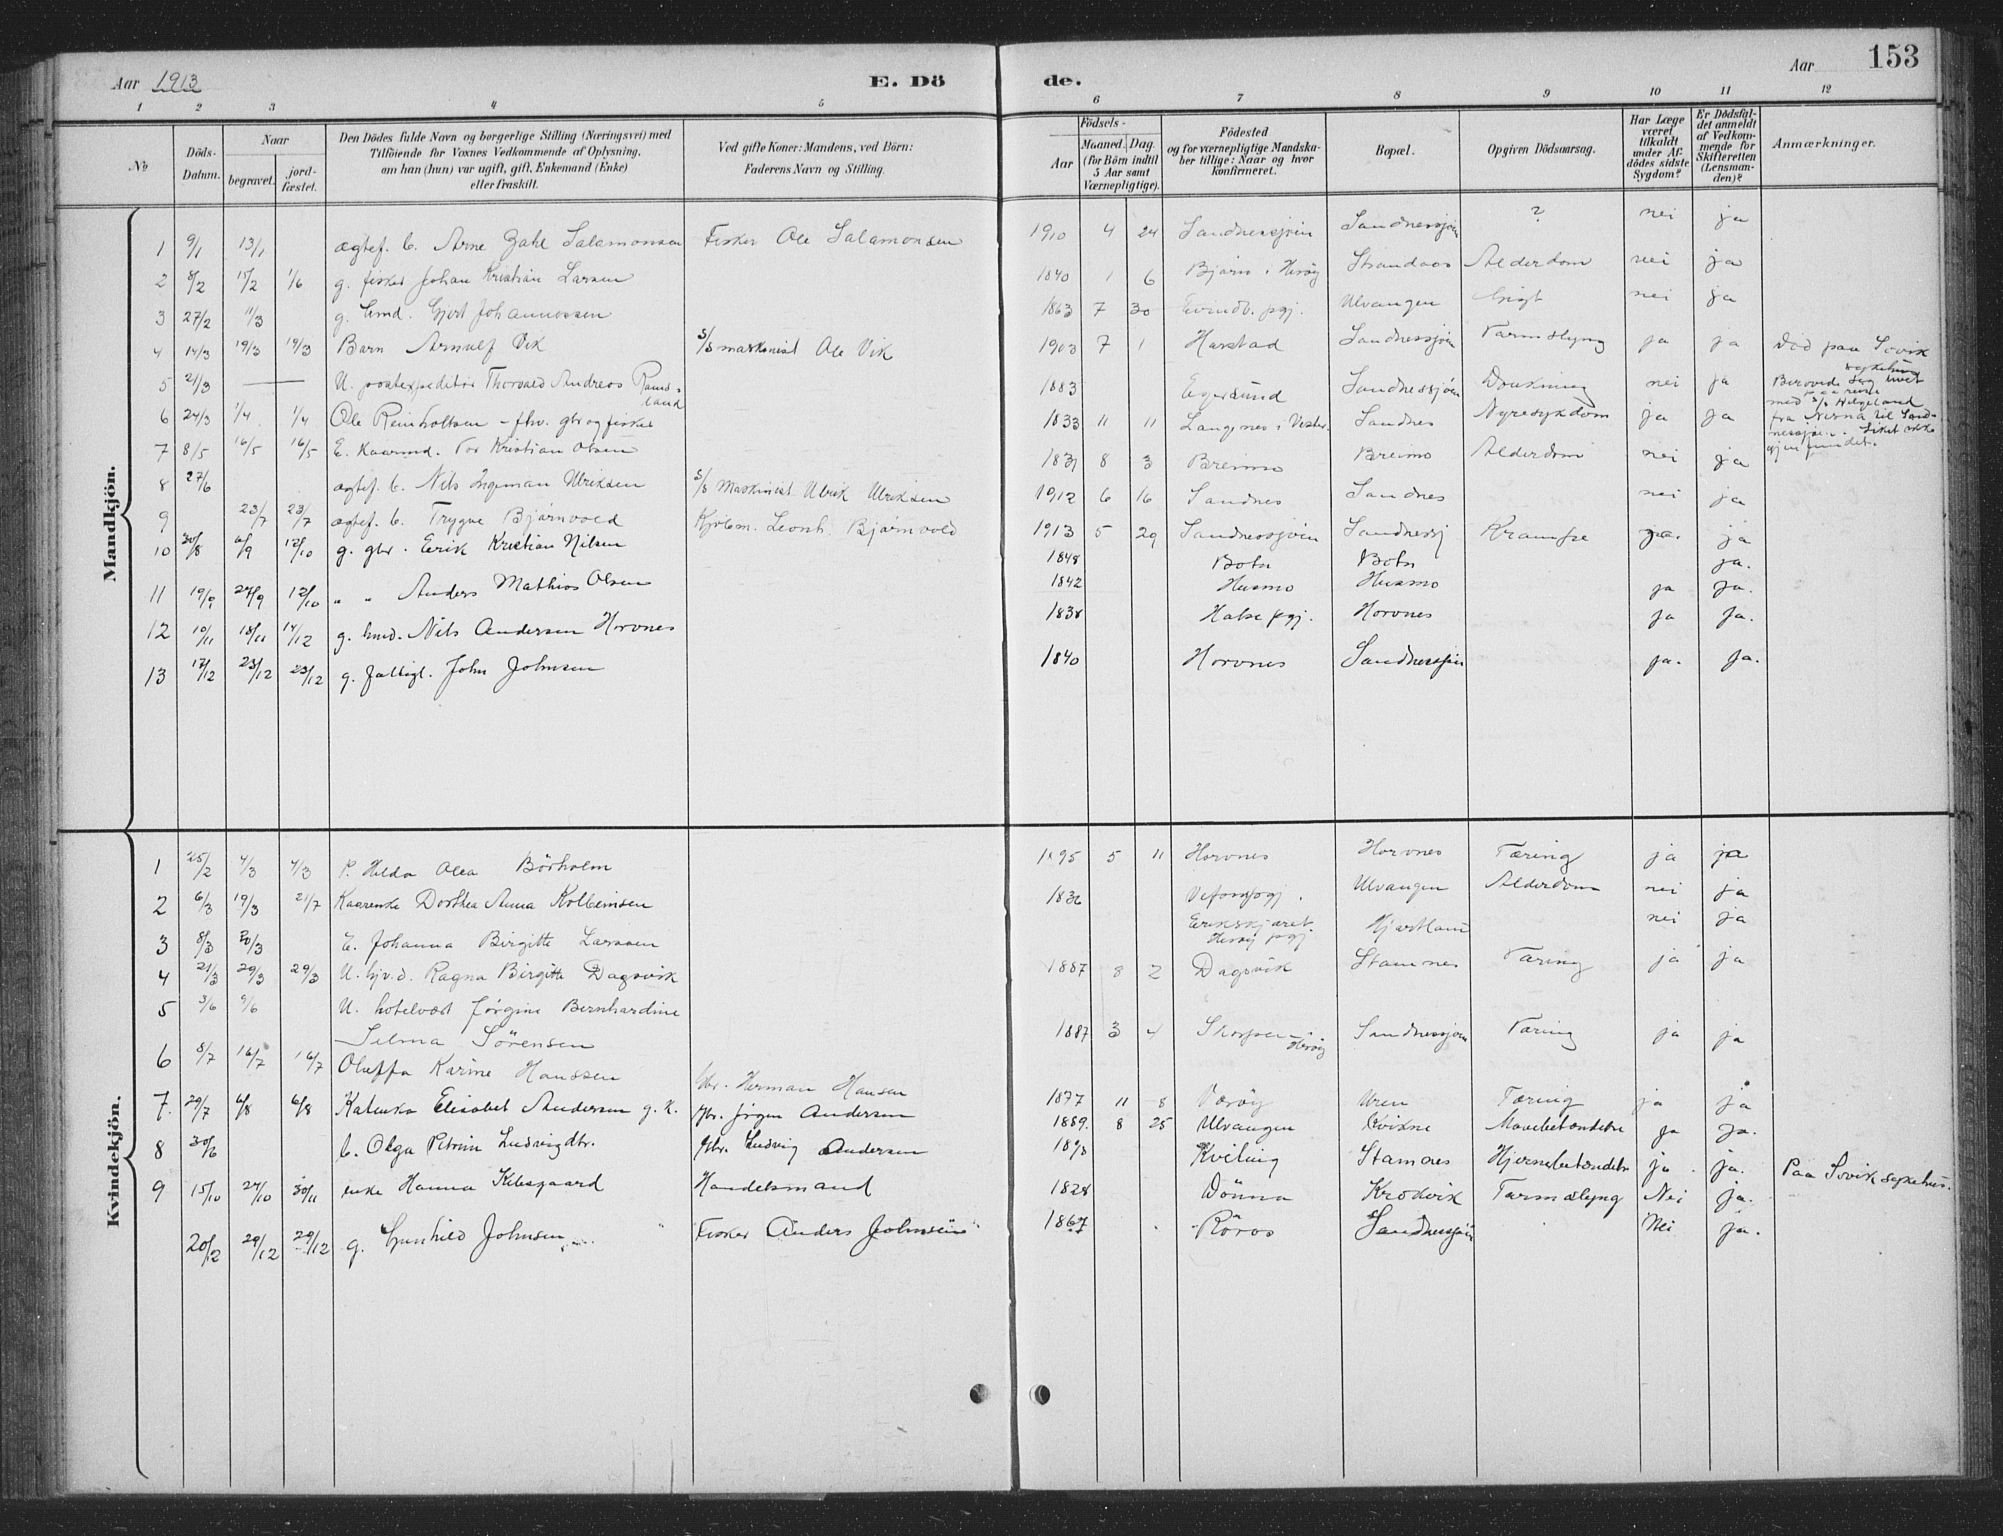 Aar 1913
E. Dö
de.
Aar
153
1 2 3 4 5 6 7 8 9 10 11 12
No
Döds-Datum.
Naar
begravet.
jord-fæstet.
Den Dödes fulde Navn og borgerlige Stilling (Næringsvei) med
Tilföiende for Voxnes Vedkommende af Oplysning,
om han (hun) var ugift, gift, Enkemand (Enke)
eller fraskilt.
Ved gifte Koner: Mandens, ved Börn:
Faderens Navn og Stilling.
Födsels-
Aar
Maaned. Dag.
(for Börn indtil
5 Aar samt
Værnepligtige).
Födested
og for værnepligtige Mandska-
ber tillige: Naar og hvor
konfirmeret.
Bopæl.
Opgiven Dödsaarsag.
Har Læge
været
tilkaldt
under Af-
dödes sidste
Sygdom?
Er Dödsfal-
det anmeldt
af Vedkom-
mende for
Skifteretten
(Lensman-
den)?
Anmærkninger.
Mandkjön.
1 9/1 13/1 ægtef. b. Arne Zahl Salamonsen Fisker Ole Salamonsen 1910 4 24 Sandnessjöen Sandnessjöen ? nei ja
2 8/2 15/2 1/6 g. fisker Johan Kristian Larsen 1840 1 6 Bjärn i Heröy Strandaas Alderdom nei ja
3 27/2 11/3 g. Gjert Johannessen 1863 7 30 pgj. Ulvangen Gigt nei ja
4 14/3 19/3 19/3 Barn Arnulf Vik S/S maskinist Ole Vik 1903 7 1 Harstad Sandnessjöen Tarmslyng ja ja Död paa Sovik sykehus
5 21/3 — U. postexpeditör Thorvald Andreas Rams-
land 1883 Egersund Sandnessjöen Drukning nei ja Berövede sig livet
paa reise
med S/S Helgeland
fra til Sand-
nessjöen. Liket ikke
gjenfundet.
6 24/3 1/4 1/4 Ole Reinholtsen - fhv. gbr og fisker 1833 11 11 Langenes i Vester. Sandnes Nyresykdom ja ja
7 8/5 16/5 16/5 E. Kaarmd. Tor Kristian Olsen 1831 8 3 Breimo Breimo Alderdom nei ja
8 27/6 ægtef. b. Nils Ingeman Ulriksen S/S Maskinist Ulrik Ulriksen 1912 6 16 Sandnes Sandnes nei ja
9 23/7 23/7 ægtef. b. Trygve Bjärnvold Kjöbm. Leonh. Bjärnvold 1913 5 29 Sandnessjöen Sandnessj Krampe ja. ja
10 30/8 6/9 12/10 g. gbr. Eerik Kristian Nilsen 1848 Botn Botn ja.
11 19/9 27/9 12/10 " " Anders Mathias Olsen 1842 Husmo Husmo ja ja.
12 10/11 18/11 14/12 g. hmd. Nils Andersen Horvnes 1838 Halsa pgj. Horvnes ja ja.
13 17/12 23/12 23/12 g. fattigl. John Johnsen 1840 Horvnes Sandnessjöen ja. ja.
Kvindekjön.
1 25/2 4/3 4/3 P. Hilda Olea Börholm 1895 5 11 Horvnes Horvnes Tæring ja ja
2 6/3 19/3 21/7 Kaarenke Dorthea Anna Kolbeinsen 1836 Vefsnpgj. Ulvangen Alderdom nei ja
3 8/3 20/3 E. Johanna Birgitte Larssen Erikskjæret.
Heröy pgj Hjartland nei ja
4 21/3 29/3 29/3 U. hjv.d. Ragna Birgitte Dagsvik 1887 8 2 Dagsvik Stamnes Tæring ja ja
5 3/6 9/6 U. hotelvært Jörgine Bernhardine
Selma Sörensen 1887 3 4 Skorpen Heröy Sandnessjöen Tæring ja ja
6 8/7 16/7 16/7 Oluffa Karine Hanssen Gbr. Herman Hansen 1877 11 8 Værøy Uren Tæring ja ja
7. 29/7 6/8 6/8 Katinka Elisabet Andersen g. k. Gbr. Jörgen Andersen 1889. 8 25 Ulvangen Kvixne Mavebetændelse ja ja.
8 30/6 b. Olga Petrine Ludvigdtr. Gbr. Ludvig Andersen Kviting Stamnes Hjernebetændelse ja. ja.
9 15/10 27/10 30/11 enke Hanna Kilsgaard Handelsmand 1828 Dönna Krokvik Tarmslyng Nei ja. Paa Sovik sykehus.
20/12 29/12 29/12 g. Gunhild Johnsen Fisker Anders Johnsen 1867 Röros Sandnessjöen Nei ja.